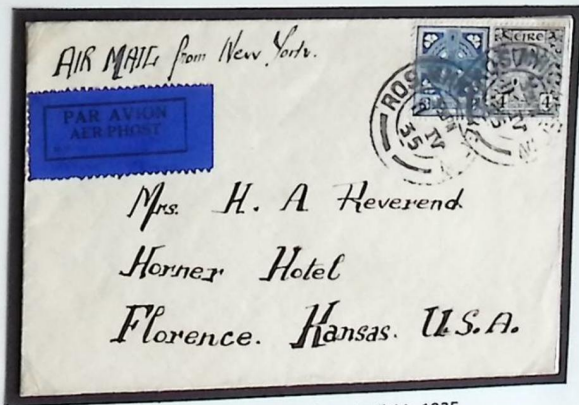 AIR MAIL from New York.
ÉIRE
PAR AVION
AER-PHOST
35
IV
35
IV
Mrs. H. A Reverend
Horner Hotel
Florence. Kansas. U.S.A.
1935